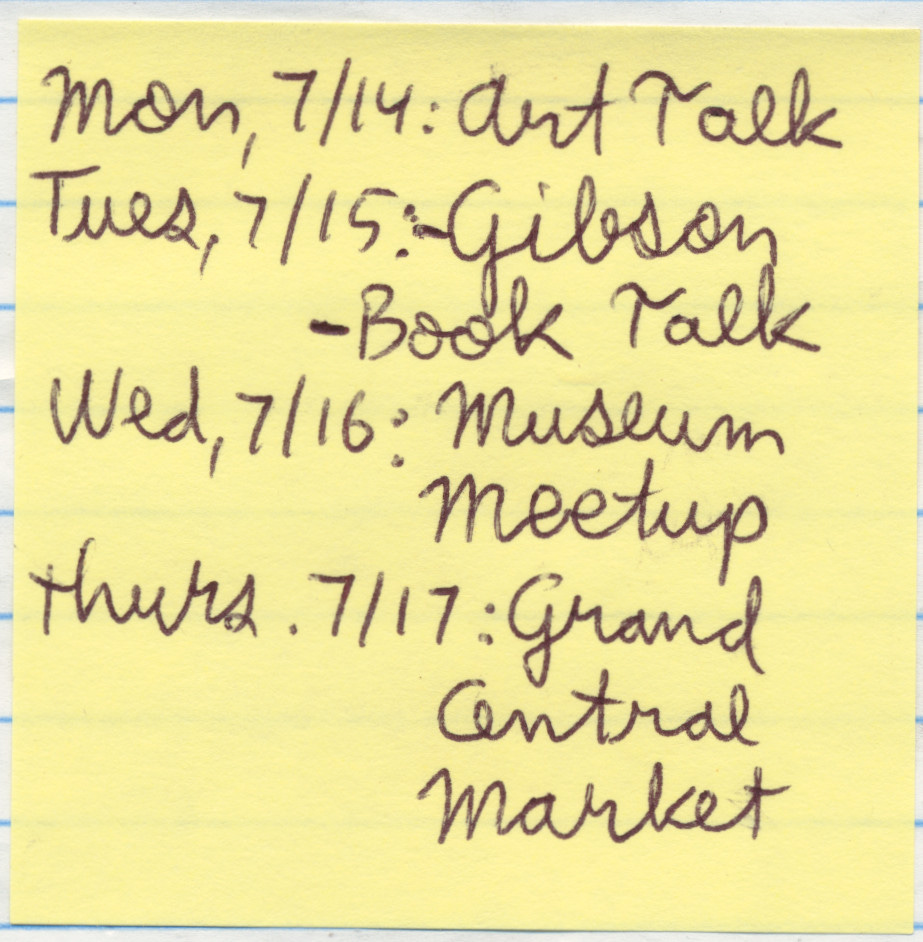 Mon, 7/14: Art Talk
Tues, 7/15: -Gibson
-Book Talk
Wed, 7/16: Museum
Meetup
Thurs. 7/17: Grand
Central
Market